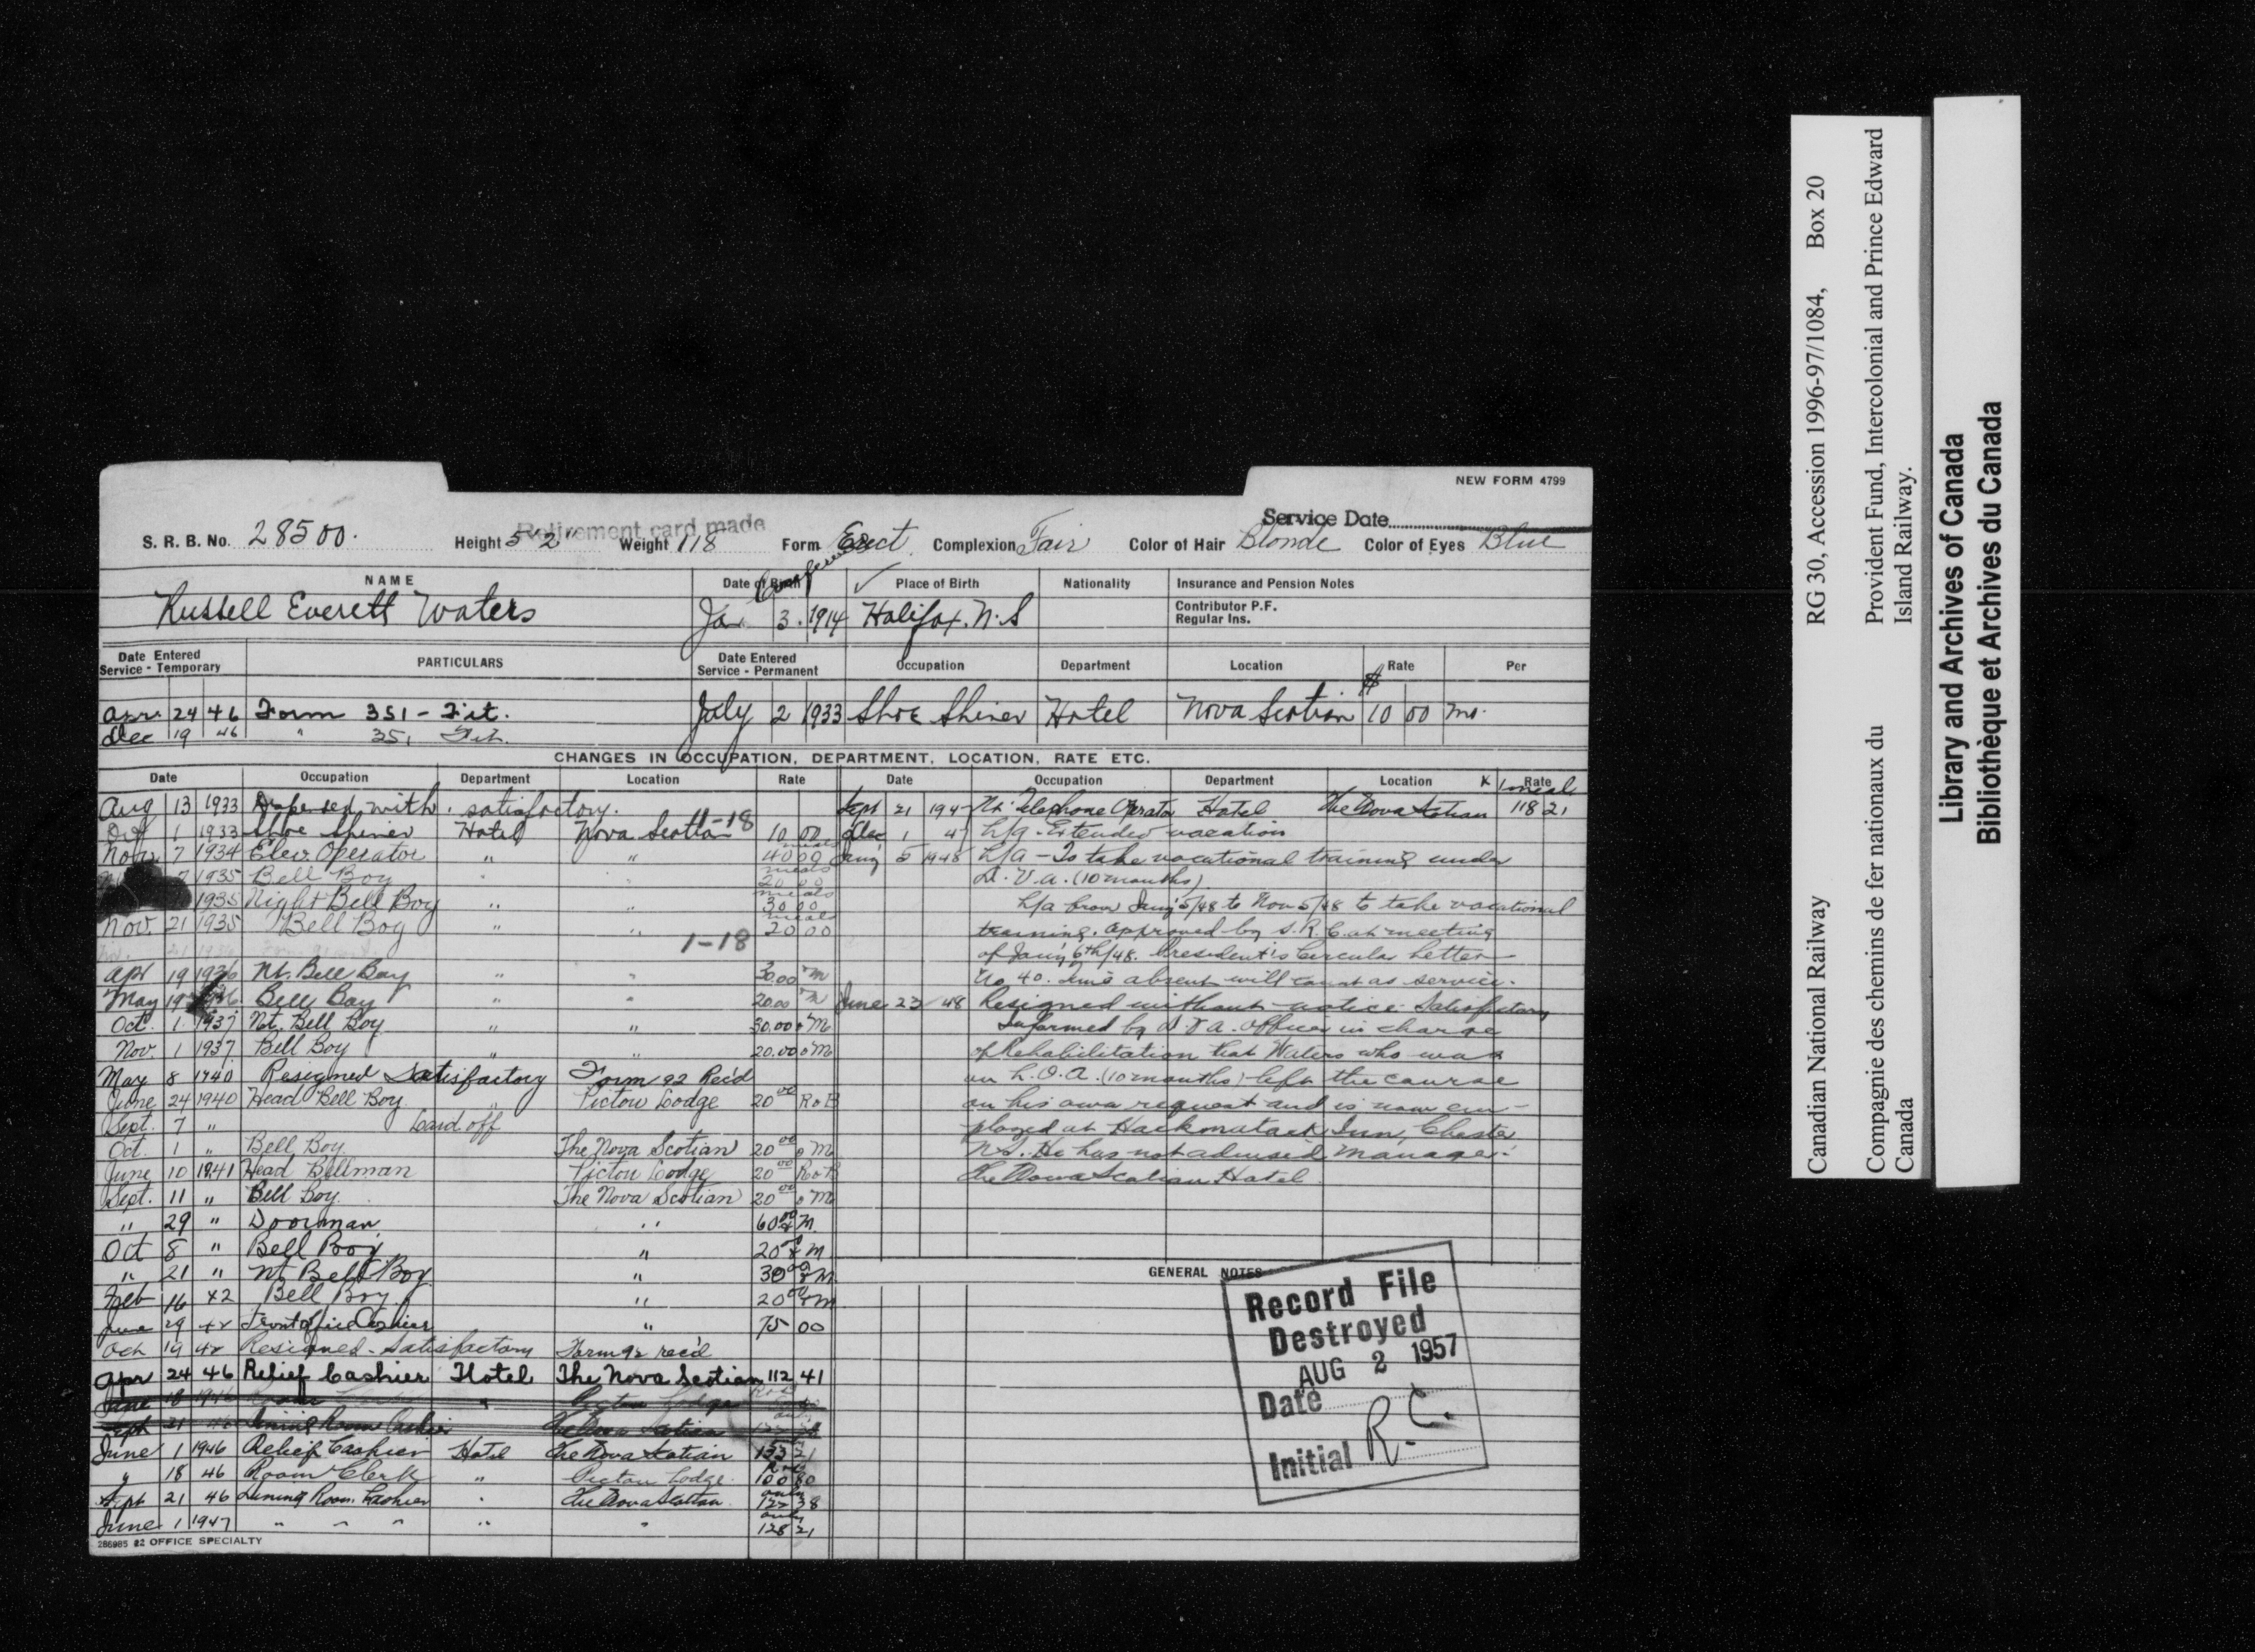 NEW FORM 4799
Retirement card made
Service Date
S. R. B. No. 28500. Height 5' 2" Weight 118 Form Erect Complexion Fair Color of Hair Blonde Color of Eyes Blue
NAME Date of Birth Place of Birth Nationality Insurance and Pension Notes
Russell Everett Waters Jan 3. 1914 Halifax, N.S Contributor P.F.
Regular Ins.
Date Entered Service - Temporary PARTICULARS Date Entered Service - Permanent Occupation Department Location Rate Per
Apr. 24 46 Form 351 - Fit. July 2 1933 Shoe Shiner Hotel Nova Scotian $ 10 00 mo.
Dec 19 46 " 351 Fit.
CHANGES IN OCCUPATION, DEPARTMENT, LOCATION, RATE ETC.
Date Occupation Department Location Rate
Aug 13 1933 Dispensed with. satisfactory.
Oct 1 1933 Shoe Shiner Hotel Nova Scotian 1-18 10 00
Nov 7 1934 Elev. Operator " " meals 40 00
7 1935 Bell Boy " " meals 20 00
1935 Night Bell Boy " " meals 30 00
Nov. 21 1935 Bell Boy " " meals 20 00
1-18
Apr 19 1936 Nt. Bell Boy " " 30.00 M
May 19 1936 Bell Boy " " 20.00 M
Oct. 1 1937 Nt. Bell Boy " " 30.00 & M
Nov. 1 1937 Bell Boy " " 20.00 & M
May 8 1940 Resigned Satisfactory Form 92 Rec'd
June 24 1940 Head Bell Boy " Pictou Lodge 20 00 R & B
Sept. 7 " Laid off
Oct. 1 " Bell Boy. The Nova Scotian 20 00 & M
June 10 1941 Head Bellman Pictou Lodge 20 00 R & B
Sept. 11 " Bell Boy. The Nova Scotian 20 00 & M
" 29 " Doorman " 60 00 & M
Oct 8 " Bell Boy " 20 00 & M
" 21 " Nt Bell Boy " 30 00 & M
Feb 16 42 Bell Boy " 20 00 & M
June 29 42 Front office Cashier " 75 00
Oct 14 42 Resigned - Satisfactory Form 92 rec'd
Apr 24 46 Relief Cashier Hotel The Nova Scotian 112 41
June 18 1946 Room " Pictou Lodge
Sept 21 46 Dining Room Cashier The Nova Scotian
June 1 1946 Relief Cashier Hotel The Nova Scotian 21
" 18 46 Room Clerk " Pictou Lodge 100 80
Sept 21 46 Dining Room Cashier " The Nova Scotian only 122 38
June 1 1947 " " " " " only 128 21
286985 22 OFFICE SPECIALTY
Date Occupation Department Location Rate
Sept 21 1947 Nt. Telephone Operator Hotel The Nova Scotian 1 meal 118 21
Dec 1 47 L/a - Extended vacation
Jan'y 5 1948 L/a - To take vocational training under
D. V. A. (10 months).
L/a from Jan'y 5/48 to Nov 5/48 to take vocational
training. approved by S.R.C. at meeting
of Jan'y 6th/48. President's Circular Letter
No 40. Time absent will count as service.
June 23 48 Resigned without notice. Satisfactory
Informed by D.V.A. officer in charge
of Rehabilitation that Waters who was
on L.O.A. (10 months) left the course
on his own request and is now em-
ployed at Hackmatack Inn, Chester
N.S. He has not advised Manager.
The Nova Scotian Hotel
GENERAL NOTES
Record File
Destroyed
AUG 2 1957
Date
Initial R.C.
Canadian National Railway RG 30, Accession 1996-97/1084, Box 20
Compagnie des chemins de fer nationaux du Canada Provident Fund, Intercolonial and Prince Edward Island Railway.
Library and Archives of Canada
Bibliothèque et Archives du Canada